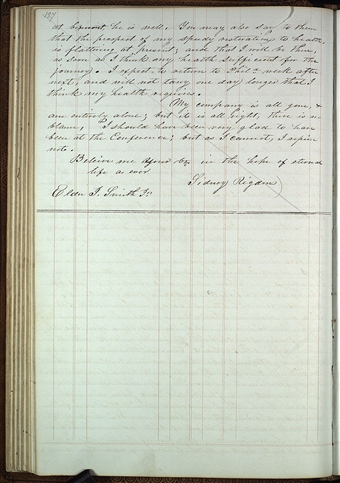 at present he is well. You may also say to them
that the prospect of my speedy restoration to health,
is flattering at present; and that I will be there,
as soon as I think my health sufficient for the
journey. I expect to return to Phila week after
next, and will not tarry one day longer than I
think my health requires.
My company is all gone, &
am entirely alone; but it is all right, there is no
blame, I should have been very glad to have
been at the Conference; but as I cannot, I repine
not.
Believe me dear in the hope of eternal
life as ever
Sidney Rigdon
Elder J. Smith Jr